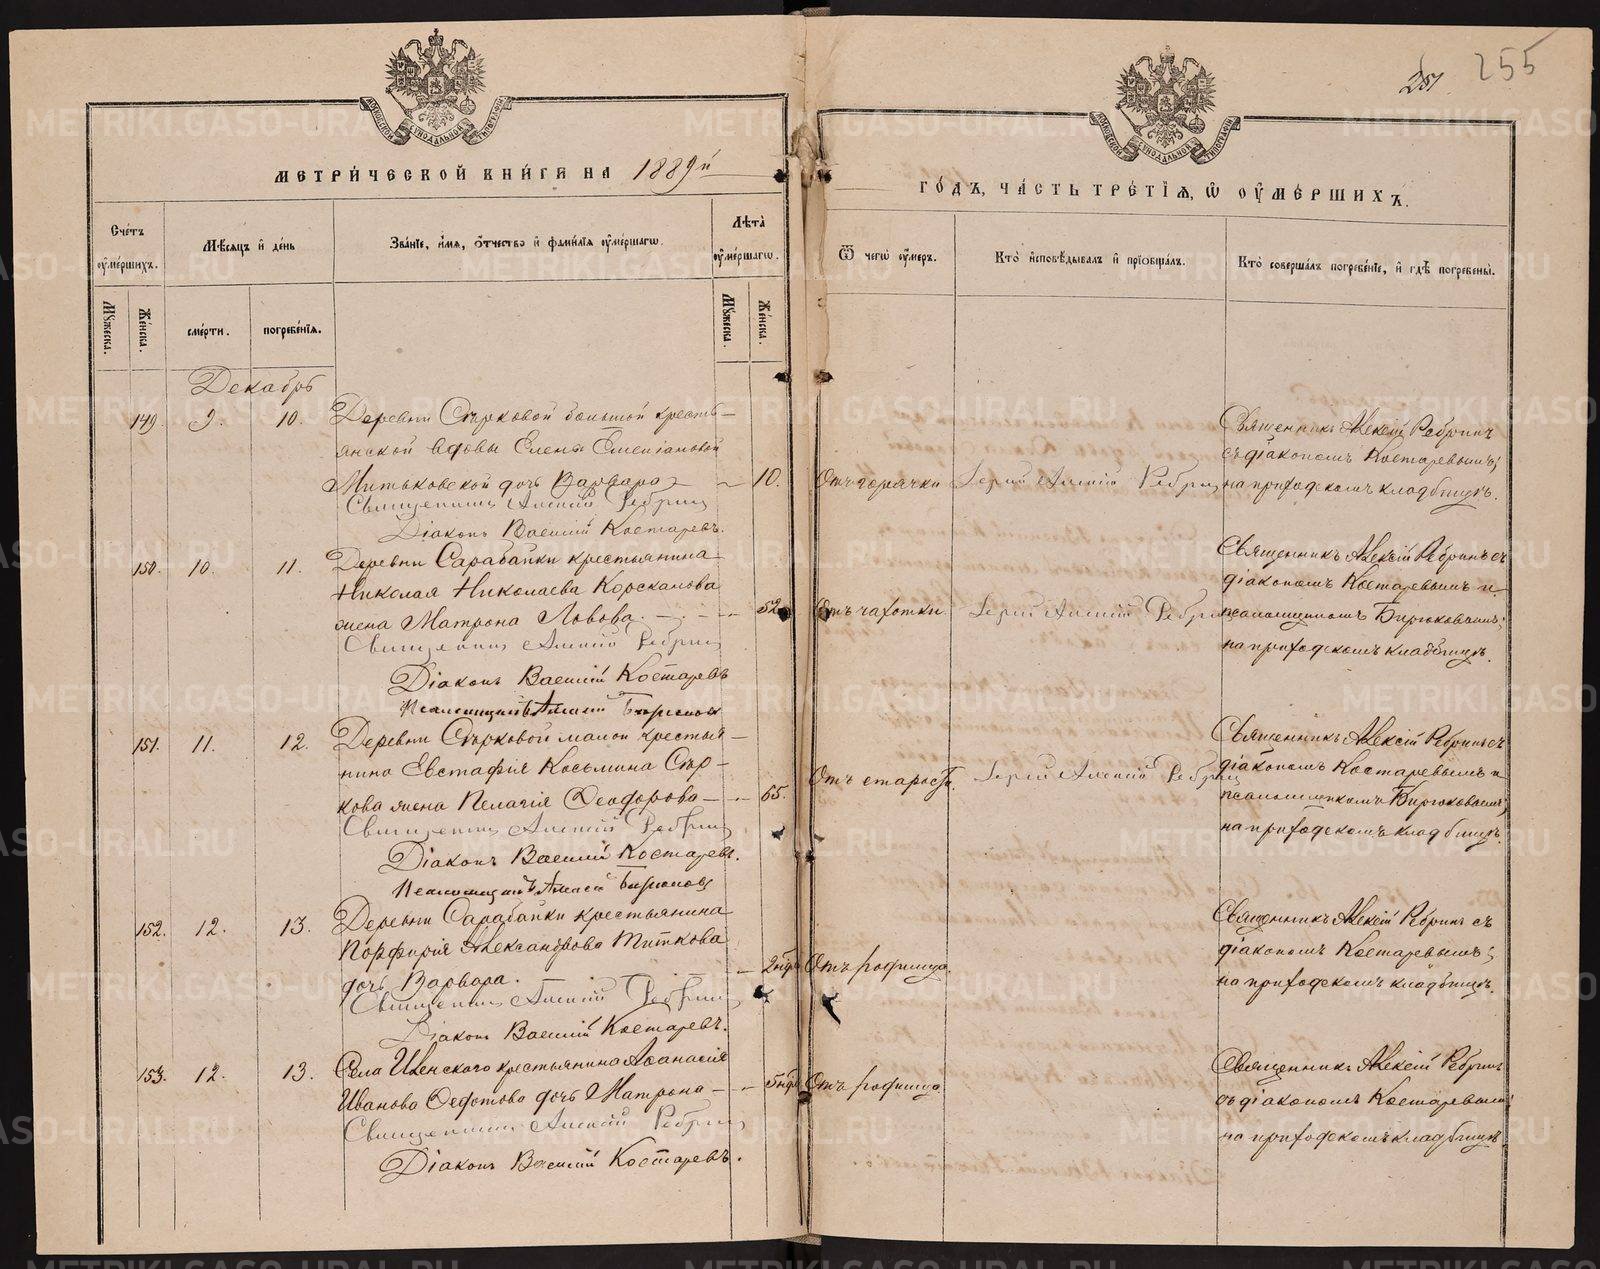 255
251
МЕТРИ́ЧЕСКОЙ КНИ́ГИ НА 1889й
ГО́ДЪ, ЧА́СТЬ ТРЕ́ТІЯ, Ѿ ОУМЕ́РШИХЪ.
Сче́тъ оуме́ршихъ.
Мѣ́сяцъ и де́нь
Зва́ніе, и́мя, о́тчество и фами́лія оуме́ршагѡ.
Лѣта̀ оуме́ршагѡ.
Ѿ чегѡ̀ оу́меръ.
Кто̀ исповѣ́дывалъ и пріобща́лъ.
Кто̀ соверша́лъ погребе́ніе, и гдѣ̀ погребены̀.
Мꙋ́жеска.
Же́нска.
сме́рти.
погребе́нія.
Мꙋ́жеска.
Же́нска.
Декабрь
149. 9. 10. Деревни Сырковой большой кресть-
янской вдовы Елены Емеліановой
Митьковской дочь Варвара 10.
Священникъ Алексій Ребринъ
Діаконъ Василій Костаревъ.
Отъ горячки
Іерей Алексій Ребринъ
Священникъ Алексій Ребринъ
съ діакономъ Костаревымъ;
на приходскомъ кладбищѣ.
150. 10. 11. Деревни Сарабайки крестьянина
Николая Николаева Корсканова
жена Матрона Львова 52
Священникъ Алексій Ребринъ
Діаконъ Василій Костаревъ
Псаломщикъ Алексій Бирюковъ
Отъ чахотки
Іерей Алексій Ребринъ
Священникъ Алексій Ребринъ съ
діакономъ Костаревымъ и
псаломщикомъ Бирюковымъ;
на приходскомъ кладбищѣ.
151. 11. 12. Деревни Сырковой малой крестья-
нина Евстафія Косьмина Сыр-
кова жена Пелагія Ѳеодорова 65.
Священникъ Алексій Ребринъ
Діаконъ Василій Костаревъ.
Псаломщикъ Алексій Бирюковъ
Отъ старости.
Іерей Алексій Ребринъ
Священникъ Алексій Ребринъ съ
діакономъ Костаревымъ и
псаломщикомъ Бирюковымъ;
на приходскомъ кладбищѣ.
152. 12. 13. Деревни Сарабайки крестьянина
Порфирія Александрова Титкова
дочь Варвара. 2 нед.
Священникъ Алексій Ребринъ
Діаконъ Василій Костаревъ.
Отъ родимца.
Священникъ Алексій Ребринъ съ
діакономъ Костаревымъ;
на приходскомъ кладбищѣ.
153. 12. 13. Села крестьянина Аѳанасія
Иванова Ѳедотова дочь Матрона 5 нед.
Священникъ Алексій Ребринъ
Діаконъ Василій Костаревъ.
Отъ родимца.
Священникъ Алексій Ребринъ
съ діакономъ Костаревымъ;
на приходскомъ кладбищѣ.
METRIKI.GASO-URAL.RU